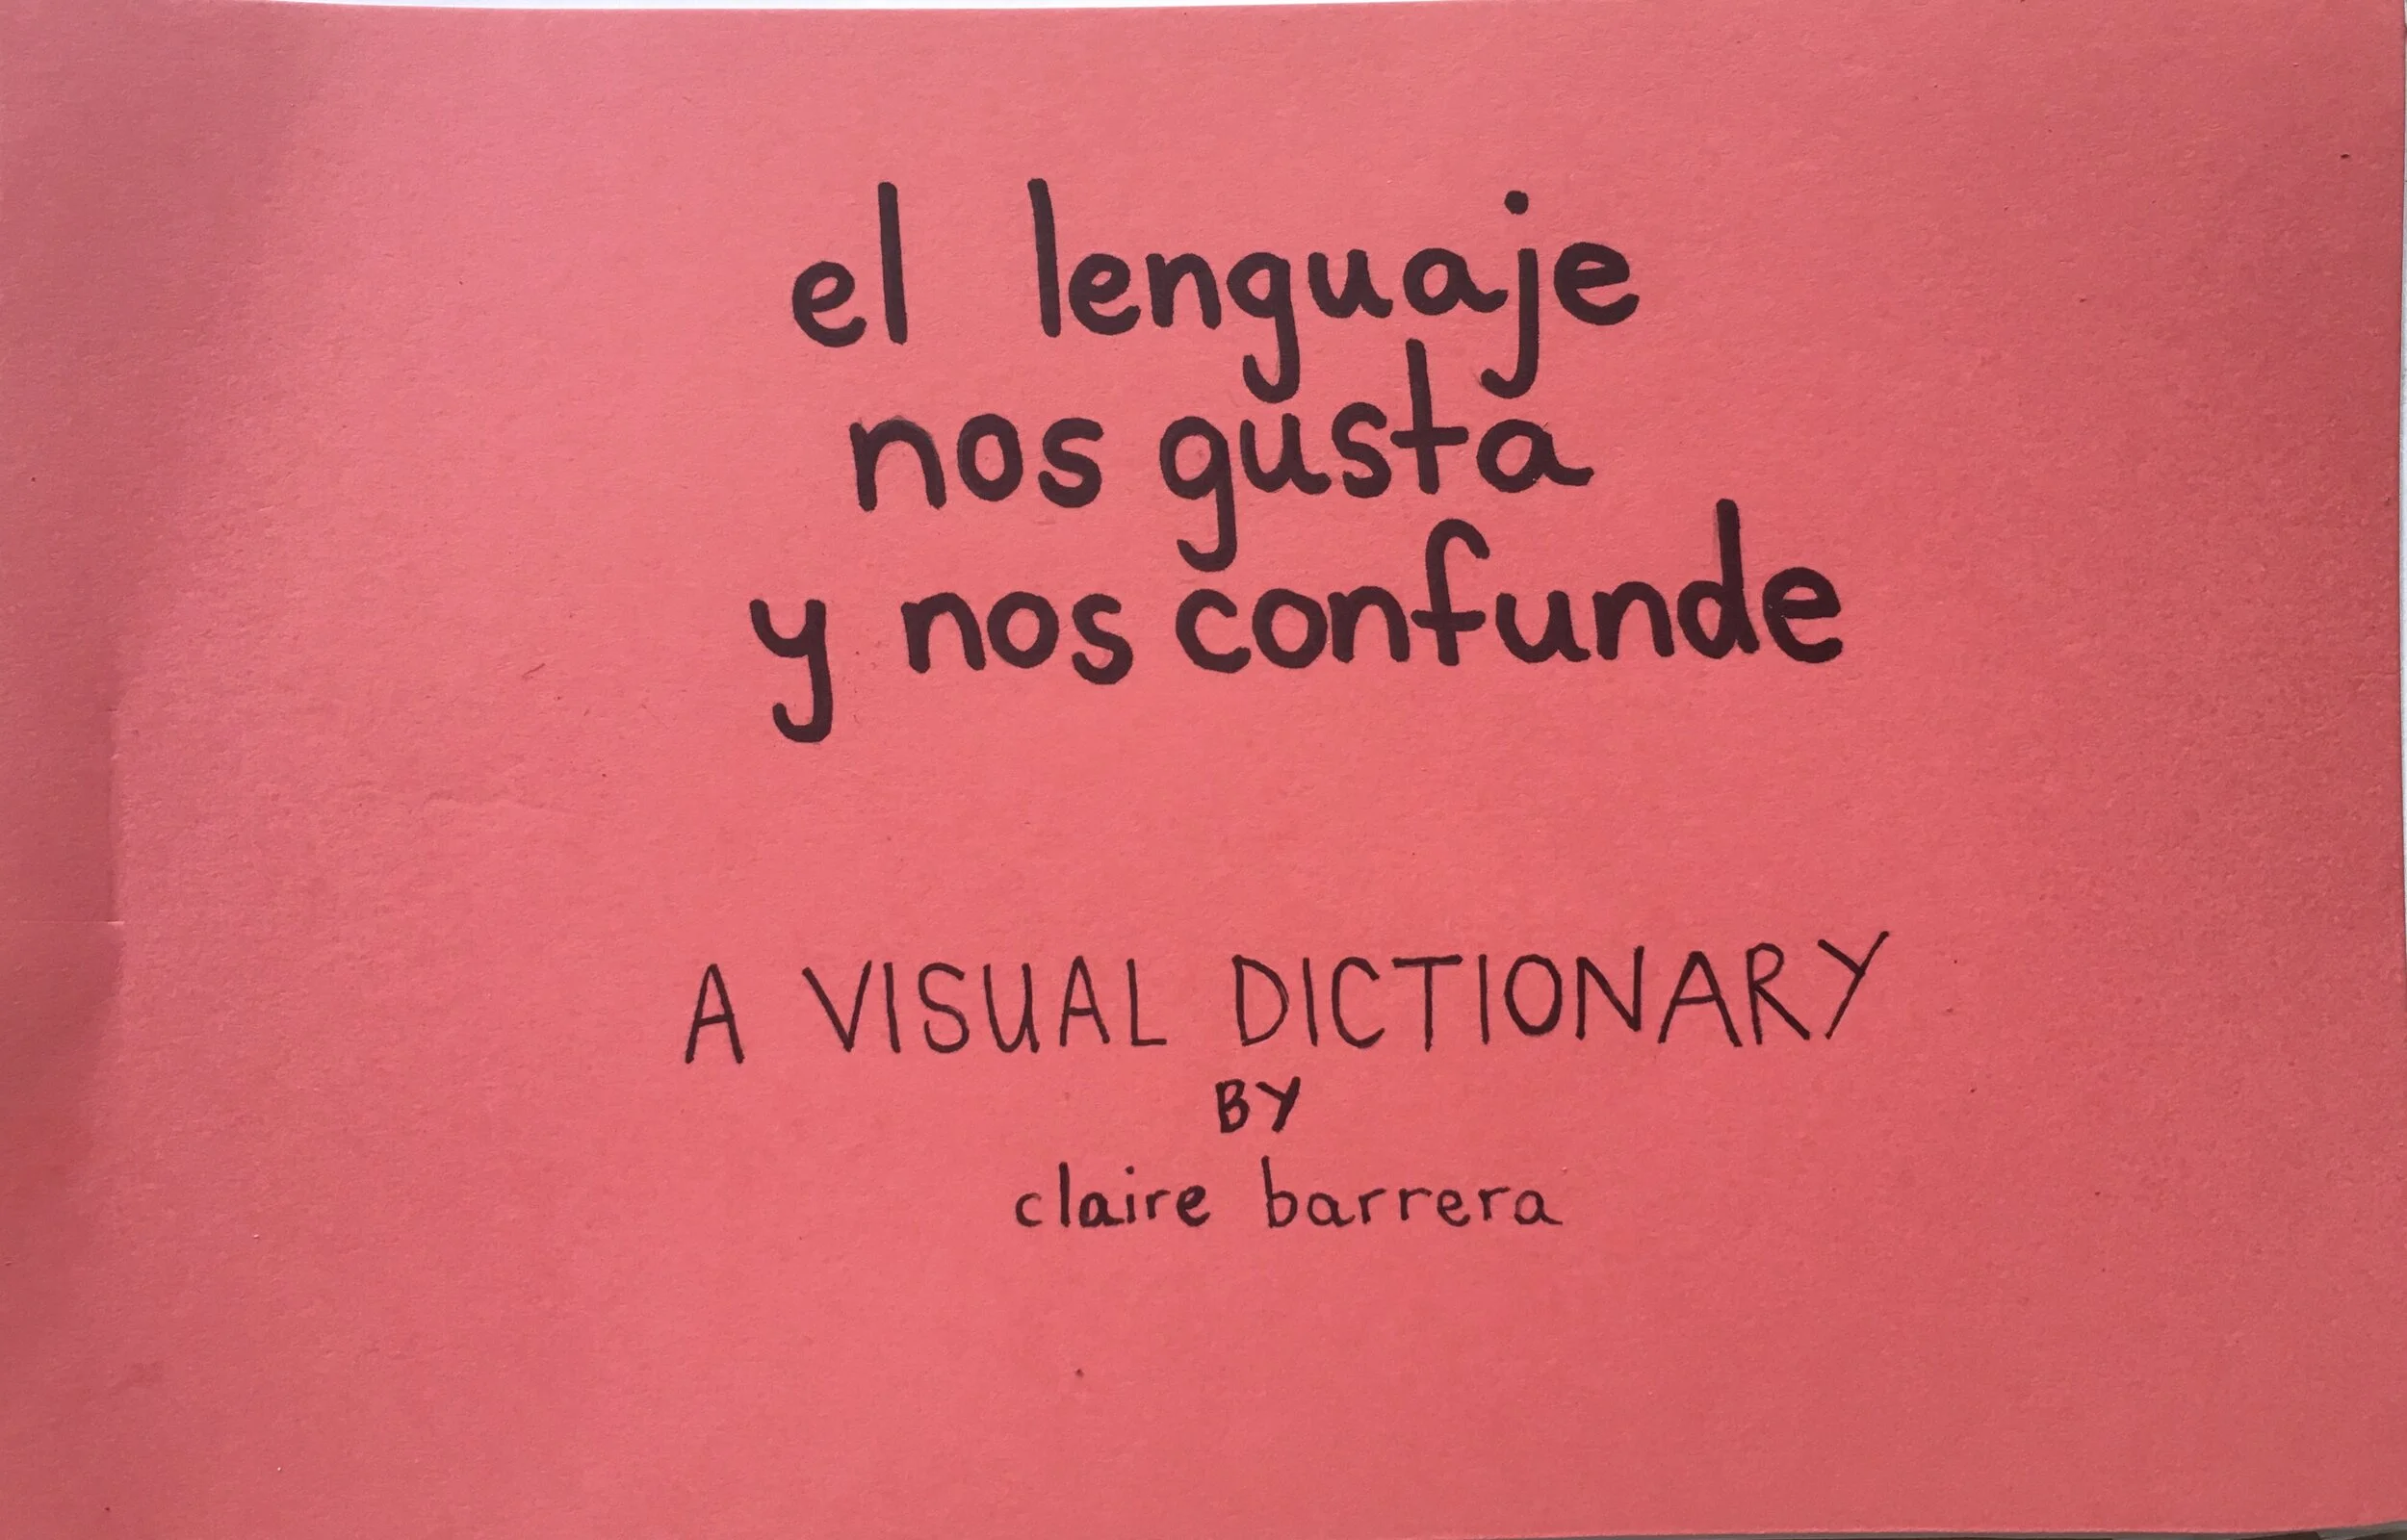 el lenguaje
nos gusta
y nos confunde
A VISUAL DICTIONARY
BY
claire barrera